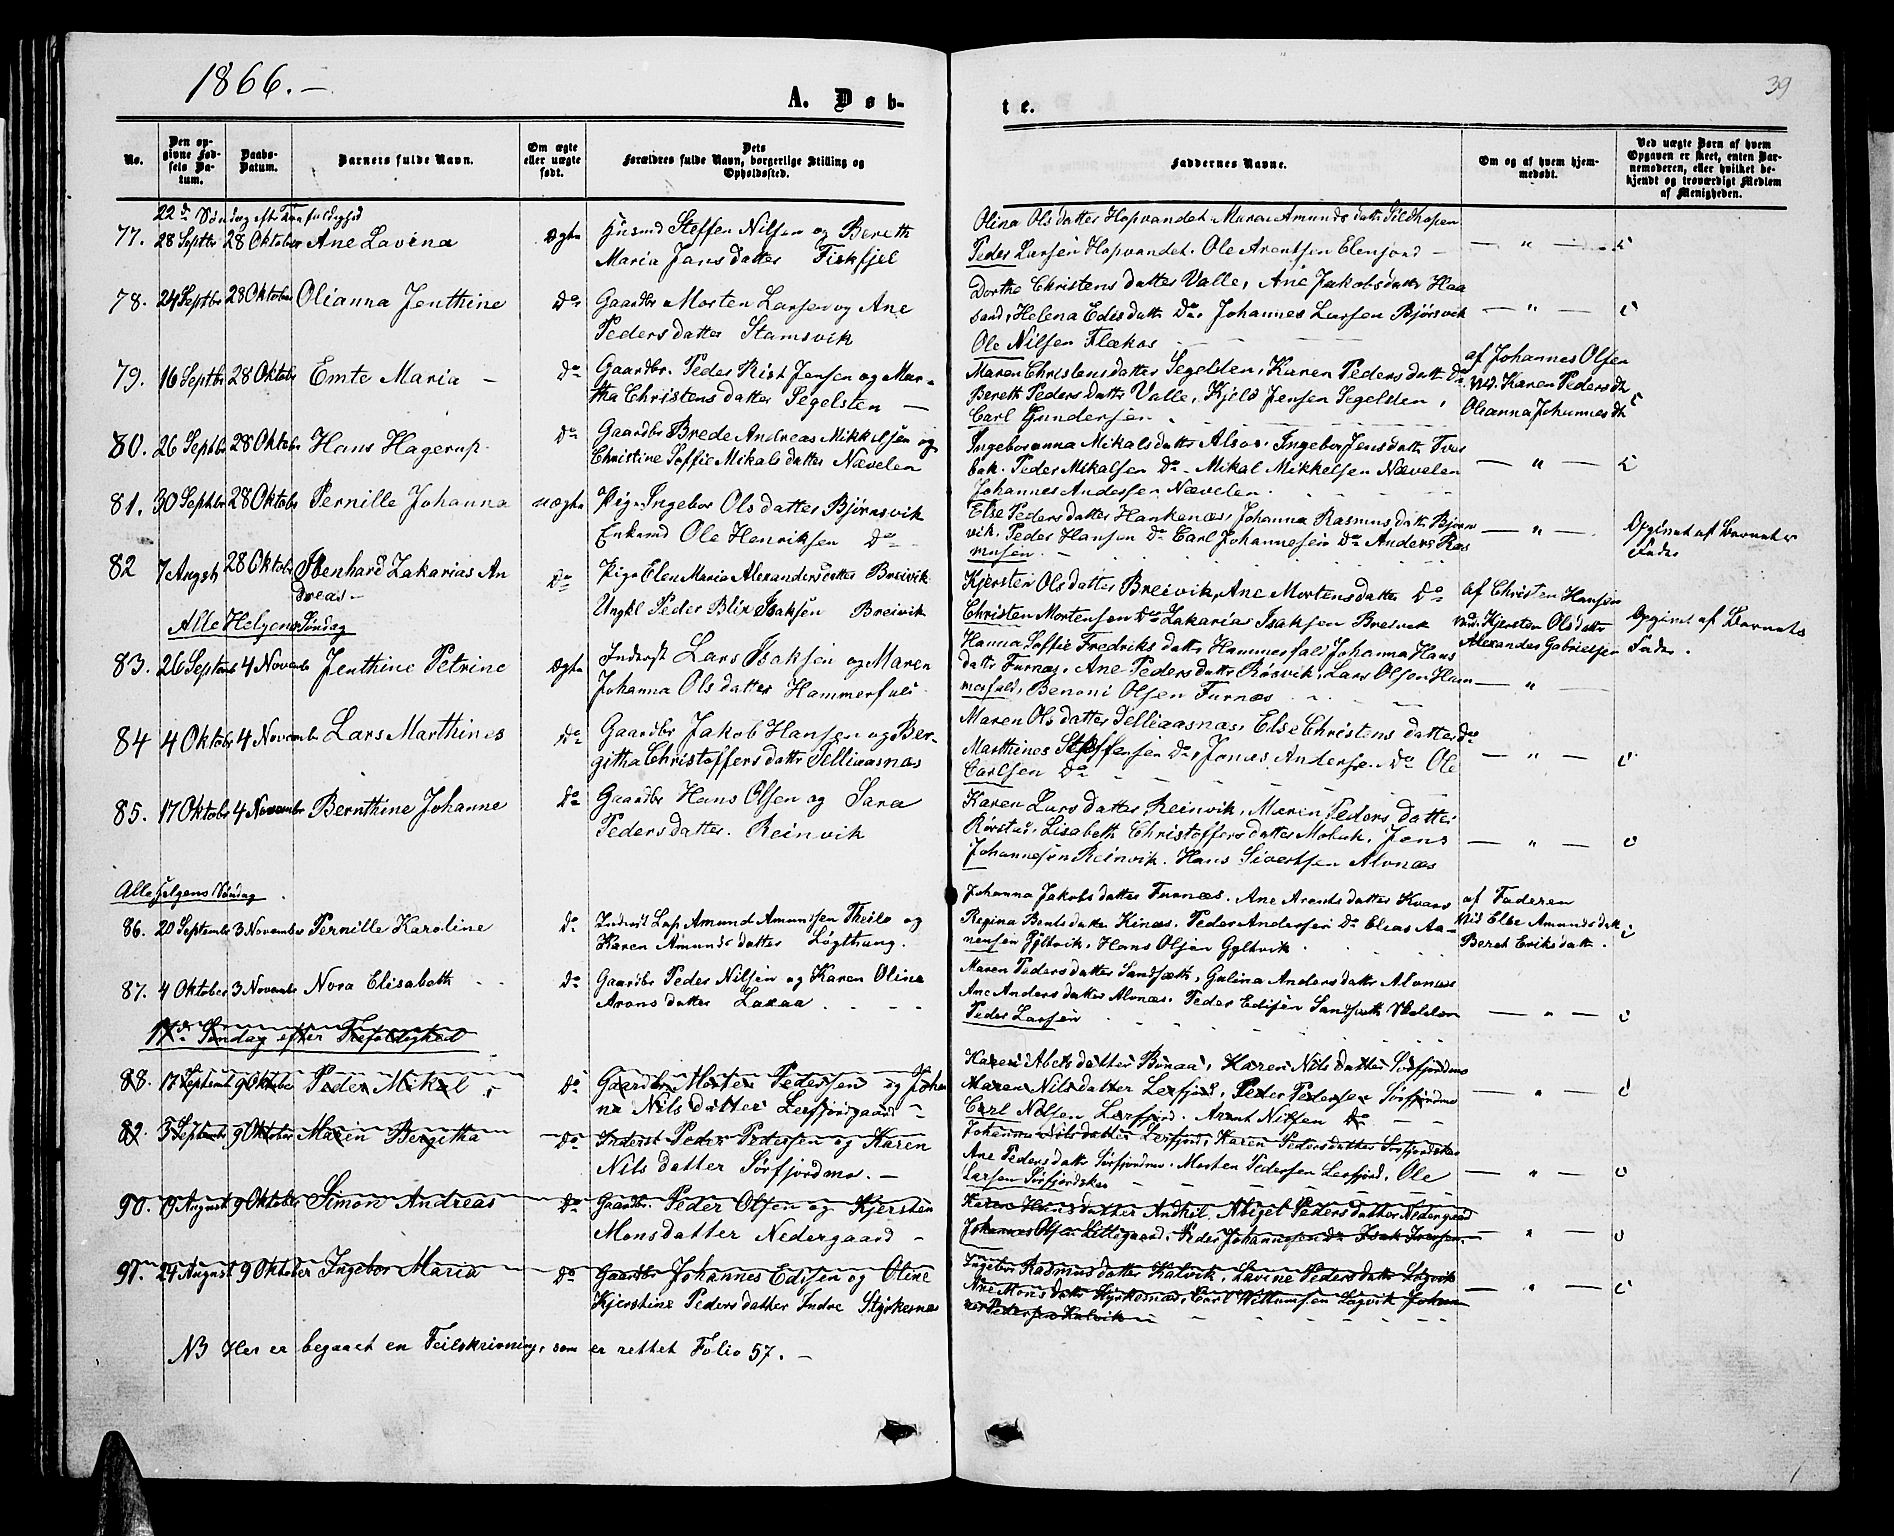 1866.–
39
A. Døb-
te.
No.
Den op-
givne Fød-
sels Da-
tum.
Daabs-
Datum.
Barnets fulde Navn.
Om ægte
eller uægte
født.
Dets
Forældres fulde Navn, borgerlige Stilling og
Opholdssted.
Faddernes Navne.
Om og af hvem hjem-
medøbt.
Ved uægte Børn af hvem
Opgaven er skeet, enten Bar-
nemoderen, eller hvilket be-
kjendt og troværdigt Medlem
af Menigheden.
22de Søndag efter Trefoldighed
77. 28 Septbr 28 Oktober Ane Lavina ægte Husmd Steffen Nilsen og Bereth
Maria Jansdatter Fiskfjel
Olina Olsdatter Hopvandet. Maren Amundsdatt Sildhopen
Peder Larsen Hopvandet. Ole Arentsen Elenjord –
— " —
78. 24 Septbr 28 Oktober Olianna Jenthine Do Gaardbr Morten Larsen og Ane
Pedersdatter Stamsvik
Dorthe Christensdatter Valle, Ane Jakobsdatter Haa
sand, Helena Edisdatter Do, Johannes Larsen Bjørsvik
Ole Nilsen Flækos
— " —
79. 16 Septbr 28 Oktobr Emte Maria – Do Gaardbr. Peder Rist Jensen og Mar-
tha Christensdatter Segelsten –
Maren Christensdatter Segelsten, Karen Pedersdatt Do
Bereth Pedersdatter Valle, Kjeld Jensen Segelsten,
Carl Gundersen
af Johannes Olsen
Vid. Karen Pedersdtr
Olianna Johannesdtr
80. 26 Septbr 28 Oktobr Hans Hagerup Do Gaardbr Brede Andreas Mikkelsen og
Christine Soffie Mikalsdatter Nævelen
Ingeboranna Mikalsdatter Alsos. Ingebor Jensdatter Tver
bak. Peder Mikalsen Do – Mikal Mikkelsen Nævelen
Johannes Andersen Nævelen.
— " —
81. 30 Septbr 28 Oktobr Pernille Johanna uægte Pige Ingebor Olsdatter Bjørnsvik
Enkemd Ole Henriksen Do
Else Pedersdatter Hankenæs, Johanna Rasmusdatt Bjørn
vik. Peder Hansen Do Carl Johannesen Do Anders Ras
musen. –
— " —
Opgivet af Barnets
Fader
82 7 August 28 Oktobr Stenhard Zakarias An
dreas –
Do Pige Elen Maria Alexandersdatter Breivik
Ungkl Peder Blix Isaksen Breivik
Kjersten Olsdatter Breivik, Ane Mortensdatter Do
Christen Mortensen Do Zakarias Isaksen Breivik
af Christen Hansen
Vid. Kjersten Olsdatter
Alexander Gabrielsen
Opgivet af Barnets
Fader.
Alle Helgens Søndag
83. 26 Septem 4 Novembr Jenthine Petrine ægte Inderst Lars Isaksen og Maren
Johanna Olsdatter Hammerfald.
Hanna Soffie Fredriksdatter Hammerfald, Johanna Hans
datter Furnæs, Ane Pedersdatter Røsvik, Lars Olsen Ham
merfald, Benoni Olsen Furnæs
— " —
84 4 Oktobr 4 Novembr Lars Marthines Do Gaardbr Jakob Hansen og Ber-
githa Christoffersdattr Telliaasnæs
Maren Olsdatter Telliaasnæs, Else Christensdatter Do
Marthines Steffensen Do, Jonas Andersen Do Ole
Carlsen Do
— " —
85. 17 Oktobr 4 Novembr Bernthine Johanne Do Gaardbr Hans Olsen og Sara
Pedersdatter. Reinvik
Karen Larsdatter Reinvik, Maren Pedersdatter
Rørstad, Lisabeth Christoffersdatter Mohuk, Jens
Johannesen Reinvik. Hans Sivertsen Alvnæs
— " —
Alle Helgens Søndag
86. 20 September 3 November Pernille Karoline Do Inderst Lap Amund Amundsen Theilo og
Karen Amundsdatter Løgthung.
Johanna Jakobsdatter Furnæs. Ane Arentsdatter Kvars
Regina Bentsdatter Kinæs. Peder Andersen Do Elias Aa-
nensen Gyltvik, Hans Olsen Gyltvik
af Faderen
Vid Else Amundsdatt
Beret Eriksdatt.
87. 4 Oktober 3 Novembr Nora Elisabeth Do Gaardbr Peder Nilsen og Karen Oline
Aronsdatter Laxaa
Maren Pedersdatter Sandsæth, Gulina Andersdatter Alvnæs
Ane Andersdatter Alvnæs. Peder Edisen Sandsæth
Peder Larsen
— " —
17de Søndag efter Trefoldighed
88. 17 Septemb 9 Oktober Peder Mikal Do Gaardbr Morten Pedersen og Johan
na Nilsdatter Lerfjordgaard –
Karen Abelsdatter Bonaa, Karen Nilsdatter Sørfjordmo
Maren Nilsdatter Lerfjord, Peder Pedersen Sørfjordmo
Carl Nilsen Lerfjord. Arent Nilsen Do – –
— " —
89. 3 Septembr 9 Oktober Maren Bergitha Do Inderst Peder Pedersen og Karen
Nilsdatter Sørfjordmo. –
Johanna Nilsdatter Lerfjord, Karen Pedersdatter Sørfjordskar
Ane Pedersdatter Sørfjordmo. Morten Pedersen Lerfjord, Ole
Larsen Sørfjordskar
— " —
90. 19 August 9 Oktober Simon Andreas Do Gaardbr. Peder Olsen og Kjersten
Monsdatter Nedergaard –
Karen Hansdatter Andkil, Abigel Pedersdatter Nedergaard
Johannes Olsen Lillegaard, Peder Johannesen Do Isak Iversen
— " —
91. 24 August 9 Oktober Ingebor Maria Do Gaardbr Johannes Edisen og Oline
Kjerstine Pedersdatter Indre Styrkesnæs
Ingebor Rasmusdatter Kalvik, Lavine Pedersdatter Løgvik
Ane Monsdatter Styrkesnæs, Carl Willumsen Løgvik Johan
nes Pedersen Kalvik –
— " —
NB Her er begaaet en Feilskrivning, som er rettet Folio 57. –